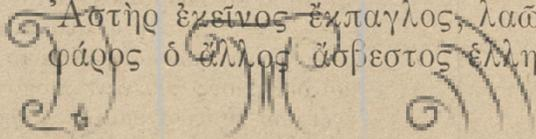 Ἀστὴρ ἐκεῖνος ἔκπαγλος, λαῶ
φάρος ὁ ἄλλος ἄσβεστος ἑλλη